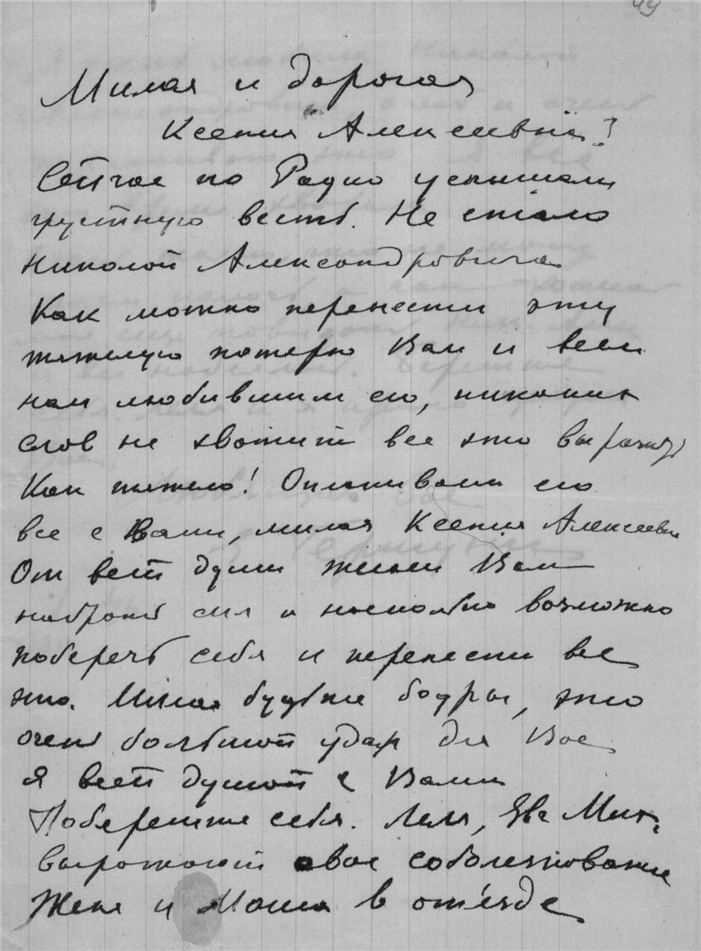 Милая и дорогая
Ксения Алексеевна!
Сейчас по Радио услышали
грустную весть. Не стало
Николай Александровича
Как можно перенести эту
тяжелую потерю Вам и всем
нам любившим его, никаких
слов не хватит все это выразить
Как тяжело! Оплакиваем его
все с Вами, милая Ксения Алексеевна
От всей души желаем Вам
набраться сил и насколько возможно
поберечь себя и перенести все
это. Милая будьте бодры, это
очень большой удар для Вас
я всей душой с Вами
Поберегите себя. Леля, Ев. Мих.
выражают свое соболезнование
Женя и Маша в отъезде